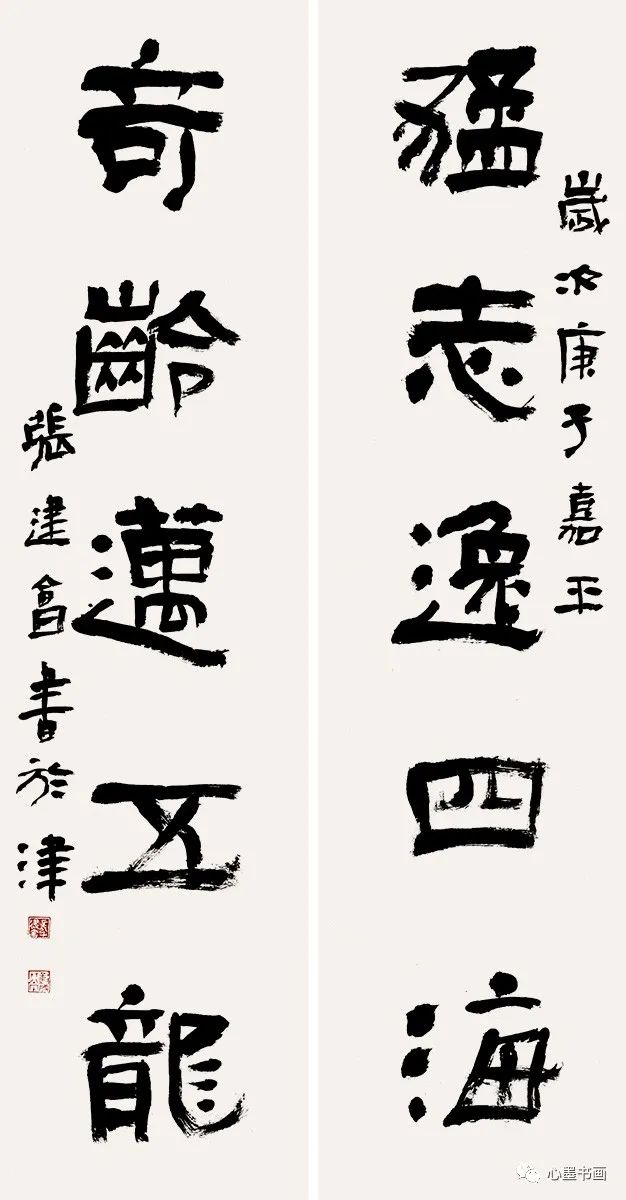 歲次庚子嘉平
猛志逸四海
竒齡邁五龍
張建會書於津
心墨书画